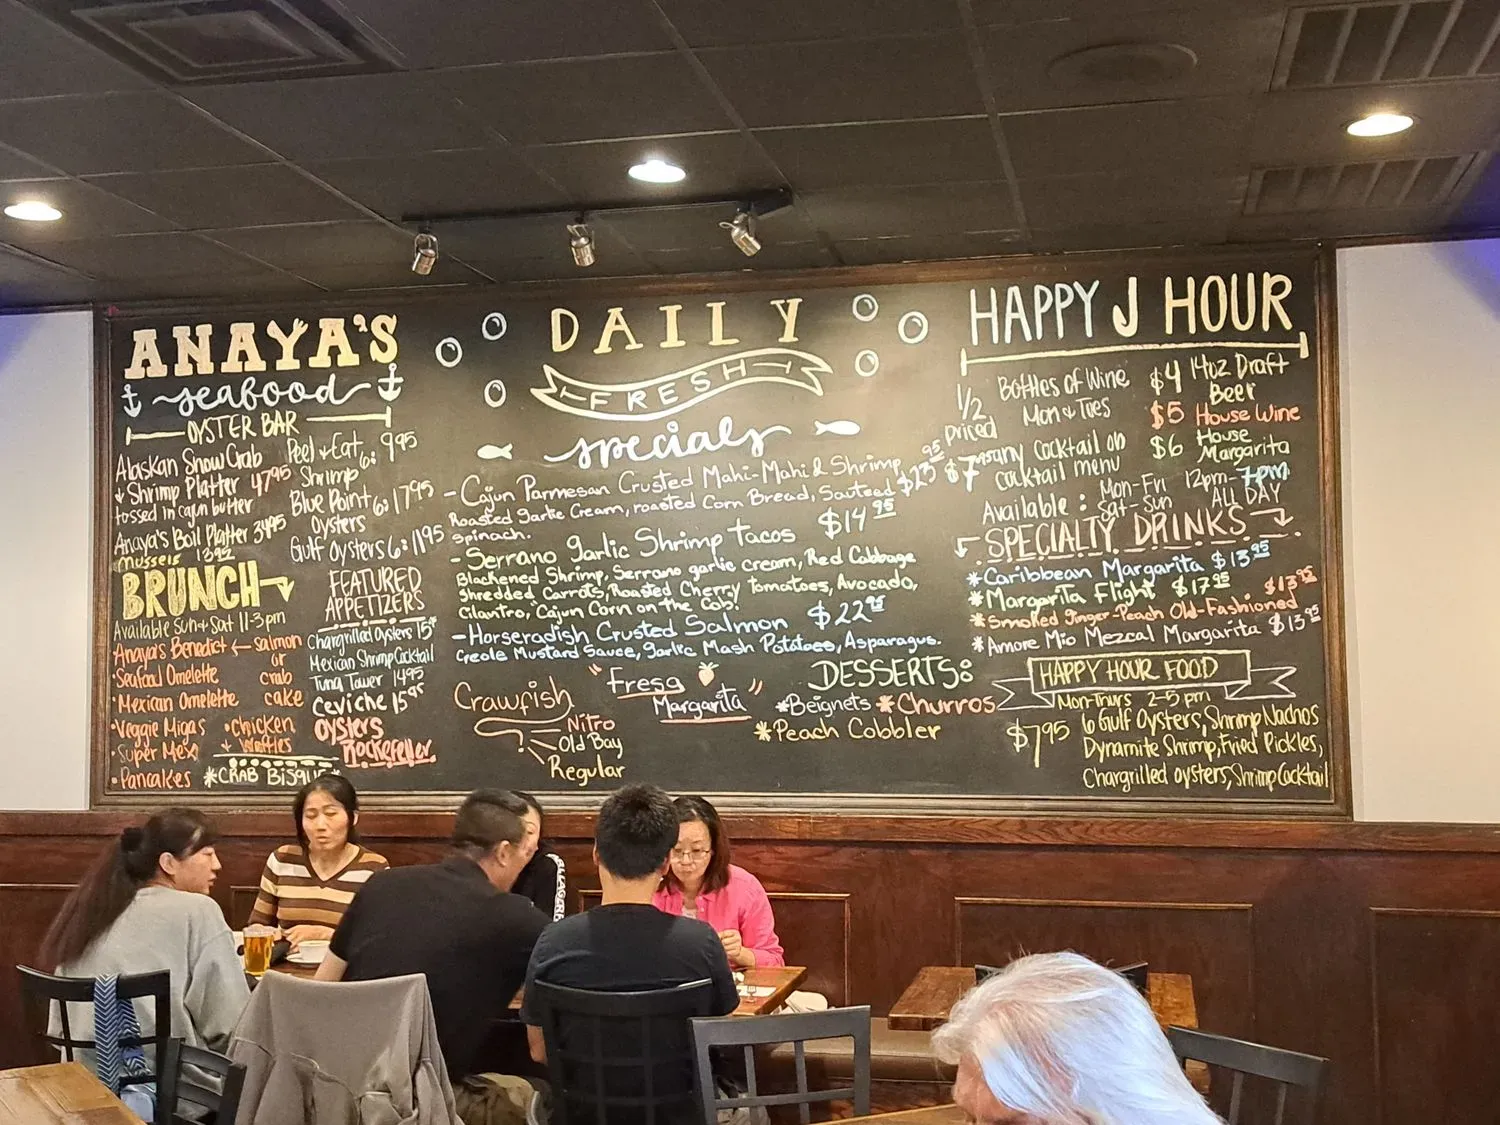 ANAYA'S
seafood
OYSTER BAR
Alaskan Snow Crab
& Shrimp Platter 4795
tossed in cajun butter
Anaya's Boil Platter 3495
Mussels 1395
Peel & Eat 6: 9.95
Shrimp
Blue Point 6: 17.95
Oysters
Gulf Oysters 6: 11.95
BRUNCH
Available Sun & Sat 11-3pm
Anaya's Benedict ← salmon
or
crab
cake
•Seafood Omelette
•Mexican Omelette
•Veggie Migas
•Chicken
& Waffles
•Super Mex
•Pancakes
*CRAB BISQUE*
FEATURED
APPETIZERS
Chargrilled Oysters 15
Mexican Shrimp Cocktail
Tuna Tower 14.95
Ceviche 15.95
OYSTERS
Rockefeller
DAILY
FRESH
specials
- Cajun Parmesan Crusted Mahi-Mahi & Shrimp $23.95
Roasted Garlic Cream, roasted Corn Bread, Sauteed
Spinach.
- Serrano Garlic Shrimp Tacos $14.95
Blackened Shrimp, Serrano garlic cream, Red Cabbage
Shredded Carrots, Roasted Cherry Tomatoes, Avocado,
Cilantro, Cajun Corn on the Cob!
- Horseradish Crusted Salmon $22.95
Creole Mustard Sauce, Garlic Mash Potatoes, Asparagus.
Crawfish
Nitro
Old Bay
Regular
"Fresa
Margarita"
DESSERTS:
*Beignets *Churros
*Peach Cobbler
HAPPY HOUR
1/2
priced
Bottles of Wine
Mon & Tues
$7.95 any Cocktail on
cocktail menu
$4 14oz Draft
Beer
$5 House Wine
$6 House
Margarita
Available: Mon-Fri 12pm-7pm
Sat-Sun ALL DAY
SPECIALTY DRINKS
*Caribbean Margarita $13.95
*Margarita Flight $17.95
*Smoked Ginger-Peach Old-Fashioned $13.95
*Amore Mio Mezcal Margarita $13.95
HAPPY HOUR FOOD
Mon-Thurs 2-5pm
$7.95 6 Gulf Oysters, Shrimp Nachos
Dynamite Shrimp, Fried Pickles,
Chargrilled oysters, Shrimp Cocktail